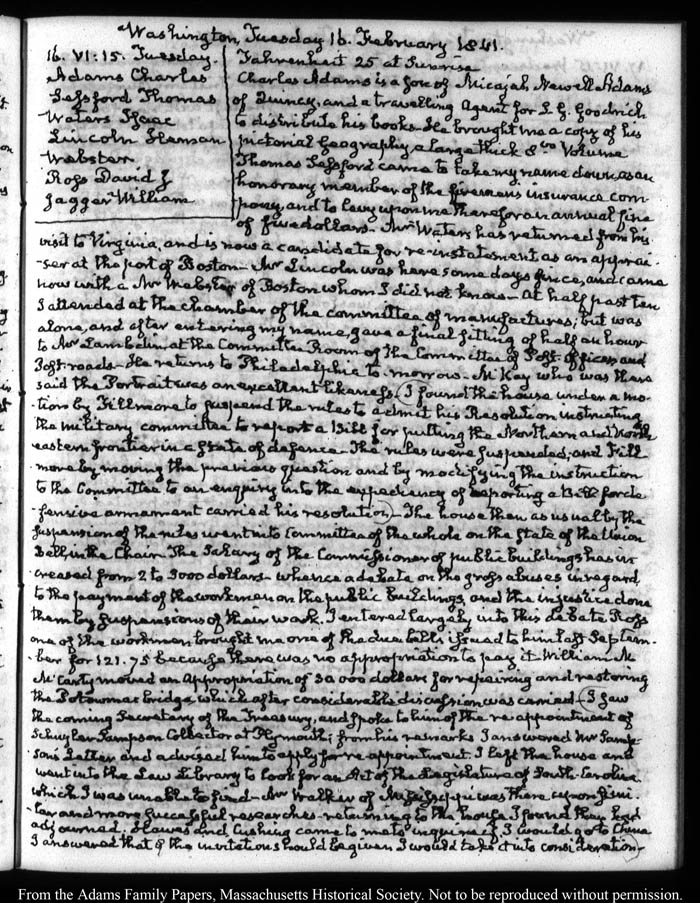 Washington, Tuesday 16. February 1841.
16. VI:15. Tuesday.
Adams Charles
Sessford Thomas
Waters Isaac
Lincoln Heman
Webster
Ross David J
Jagger William
Fahrenheit 25 at Sunrise
Charles Adams is a son of Micajah Newell Adams
of Quincy, and a travelling Agent for S. G. Goodrich
to distribute his books. He brought me a copy of his
pictorial Geography, a large thick 8vo Volume
Thomas Sessford came to take my name down, as an
honorary member of the firemens insurance com-
pany, and to levy upon me therefor an annual fine
of five dollars. Mr Waters has returned from his
visit to Virginia, and is now a candidate for re-instatement as an apprai-
-ser at the port of Boston. Mr Lincoln was here some days since, and came
now with a Mr Webster of Boston whom I did not know. At half past ten
I attended at the chamber of the committee of manufactures; but was
alone, and after entering my name, gave a final sitting of half an hour
to Mr Lambdin, at the Committee Room of the Committee of Post-offices and
Post-roads. He returns to Philadelphia to-morrow. McKay who was there
said the Portrait was an excellent likeness. (I found the house under a mo-
-tion by Fillmore to suspend the rules to admit his Resolution instructing
the military committee to report a Bill for putting the Northern and North
eastern frontier in a State of defence. The rules were suspended; and Fill-
more by moving the previous question and by modifying the instruction
to the Committee to an enquiry into the expediency of reporting a Bill for de-
fensive armament carried his resolution) The house then as usual by the
suspension of the rules went into Committee of the whole on the state of the Union
Bell, in the Chair. The Salary of the Commissioner of public buildings has in-
creased from 2 to 3000 dollars. whence a debate on the gross abuses in regard
to the payment of the workmen on the public buildings, and the injustice done
them by suspensions of their work. I entered largely into this debate. Ross
one of the workmen brought me one of the due bills issued to him last Septem-
ber for 121.75 because there was no appropriation to pay it. William M
McCarty moved an Appropriation of 30 000 dollars for repairing and restoring
the Potowmac bridge, which after considerable discussion was carried. (I saw
the coming Secretary of the Treasury, and spoke to him of the re-appointment of
Schuyler Sampson Collector at Plymouth; from his remarks I answered Mr Samp-
son's Letter and advised him to apply for re-appointment. I left the house and
went into the Law Library to look for an Act of the Legislature of South-Carolina
which I was unable to find. Mr Walker of Mississippi was there upon simi-
lar and more successful researches. returning to the house I found they had
adjourned. Hawes and Cushing came to me to inquire if I would go to China
I answered that if the invitation should be given I would take it into consideration)
From the Adams Family Papers, Massachusetts Historical Society. Not to be reproduced without permission.